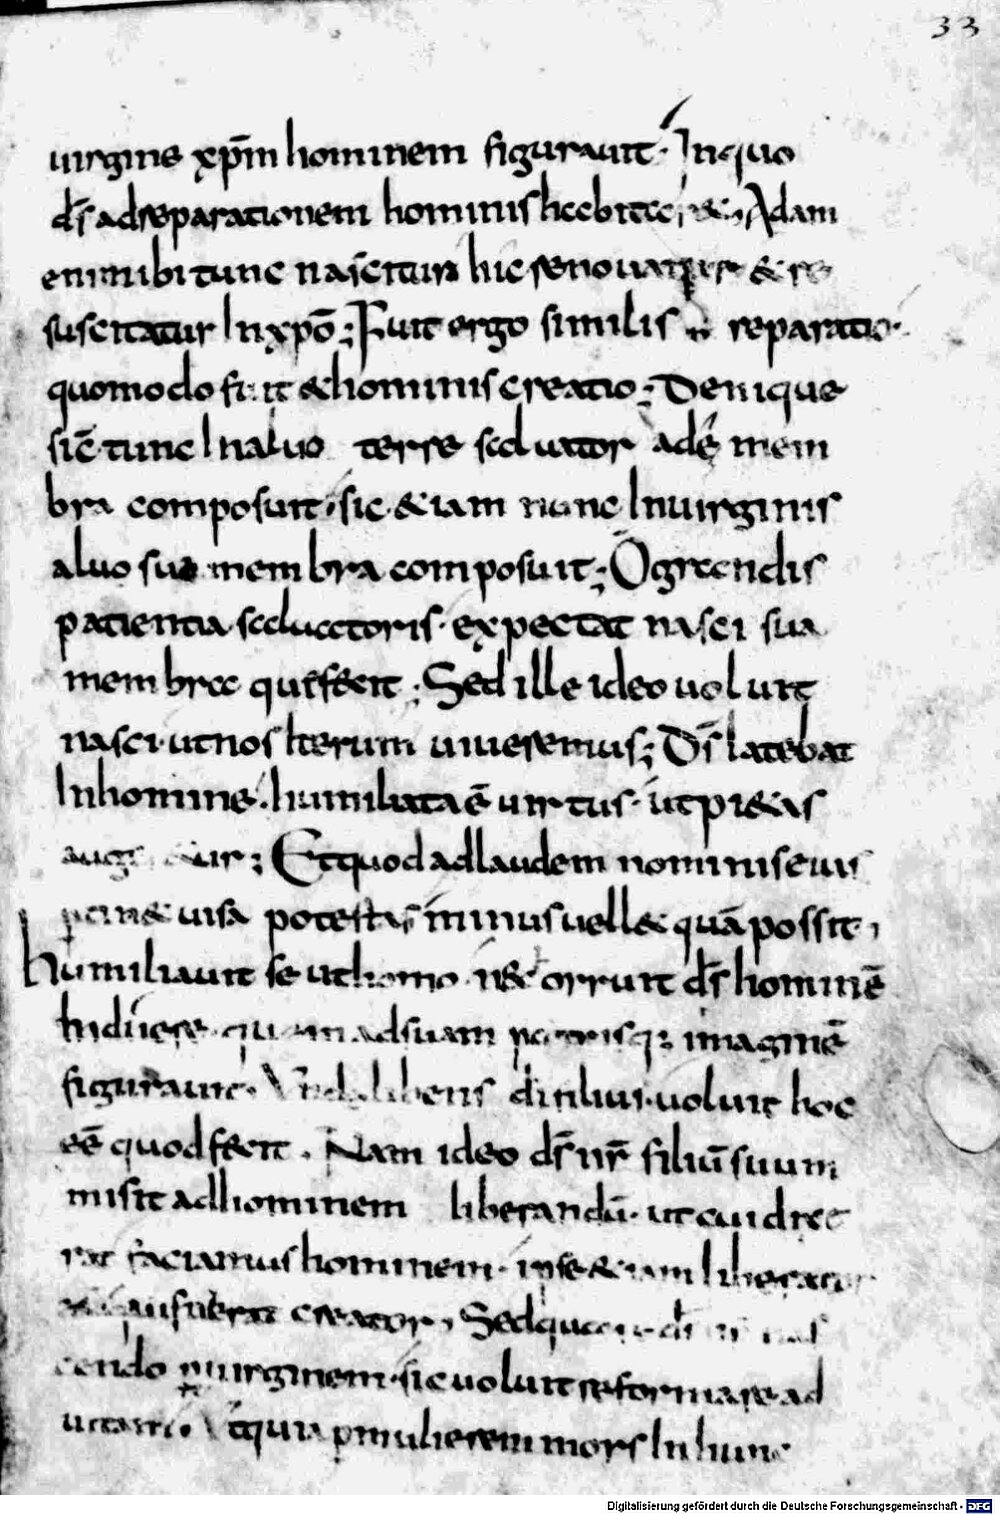 33
uirgine xp̄m hominem figurauit. In quo
d̄s ad reparationem hominis habitar& Adam
enim ibi tunc nascitur hic renouatur & re
suscitatur In xp̄o; Fuit ergo similis reparatio
quomodo fuit & hominis creatio; Denique
sic tunc In aluo terre saluator ade mem
bra composuit, sic & iam nunc In uirginis
aluo sua membra composuit; O grandis
patientia saluatoris. expectat nasci sua
membra que fecit; Sed ille ideo uoluit
nasci. ut nos Iterum uiueremus; D̄s latebat
In homine. humiliata ē uirtus. ut pi&as
aug&ur; Et quod ad laudem nominis eius
pertin& uisa potestas minus uell& quā possit,
humiliauit se ut homo. n& orruit d̄s hominē
Induere. quem ad suam patrisq; imaginē
figurauit. Unde libens d̄i filius. uoluit hoc
eē quod fecit. Nam ideo d̄s nr̄ filiū suum
misit ad hominem liberandū. ut cui dixe
rat faciamus hominem. ipse & iam liberator
qui fuerat creator, Sed nas
cendo p uirginem. sic uoluit reformare ad
uitam. Ut quia p mulierem mors In hunc
Digitalisierung gefördert durch die Deutsche Forschungsgemeinschaft - DFG